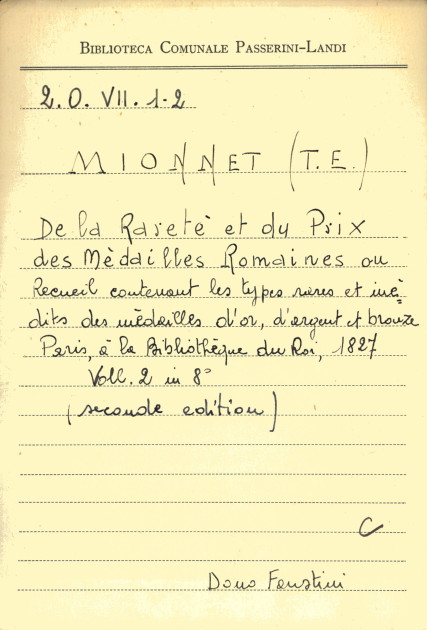 Biblioteca Comunale Passerini-Landi
2.O. VII. 1-2
MIONNET (T.E.)
De la Raretè et du Prix
des Mèdailles Romaines ou
Recueil contenant les types rares et inè=
dits des mèdailles d'or, d'argent et bronze
Paris, à la Bibliothèque du Roi, 1827
Voll. 2 in 8°
(seconde edition)
C
Dono Faustini